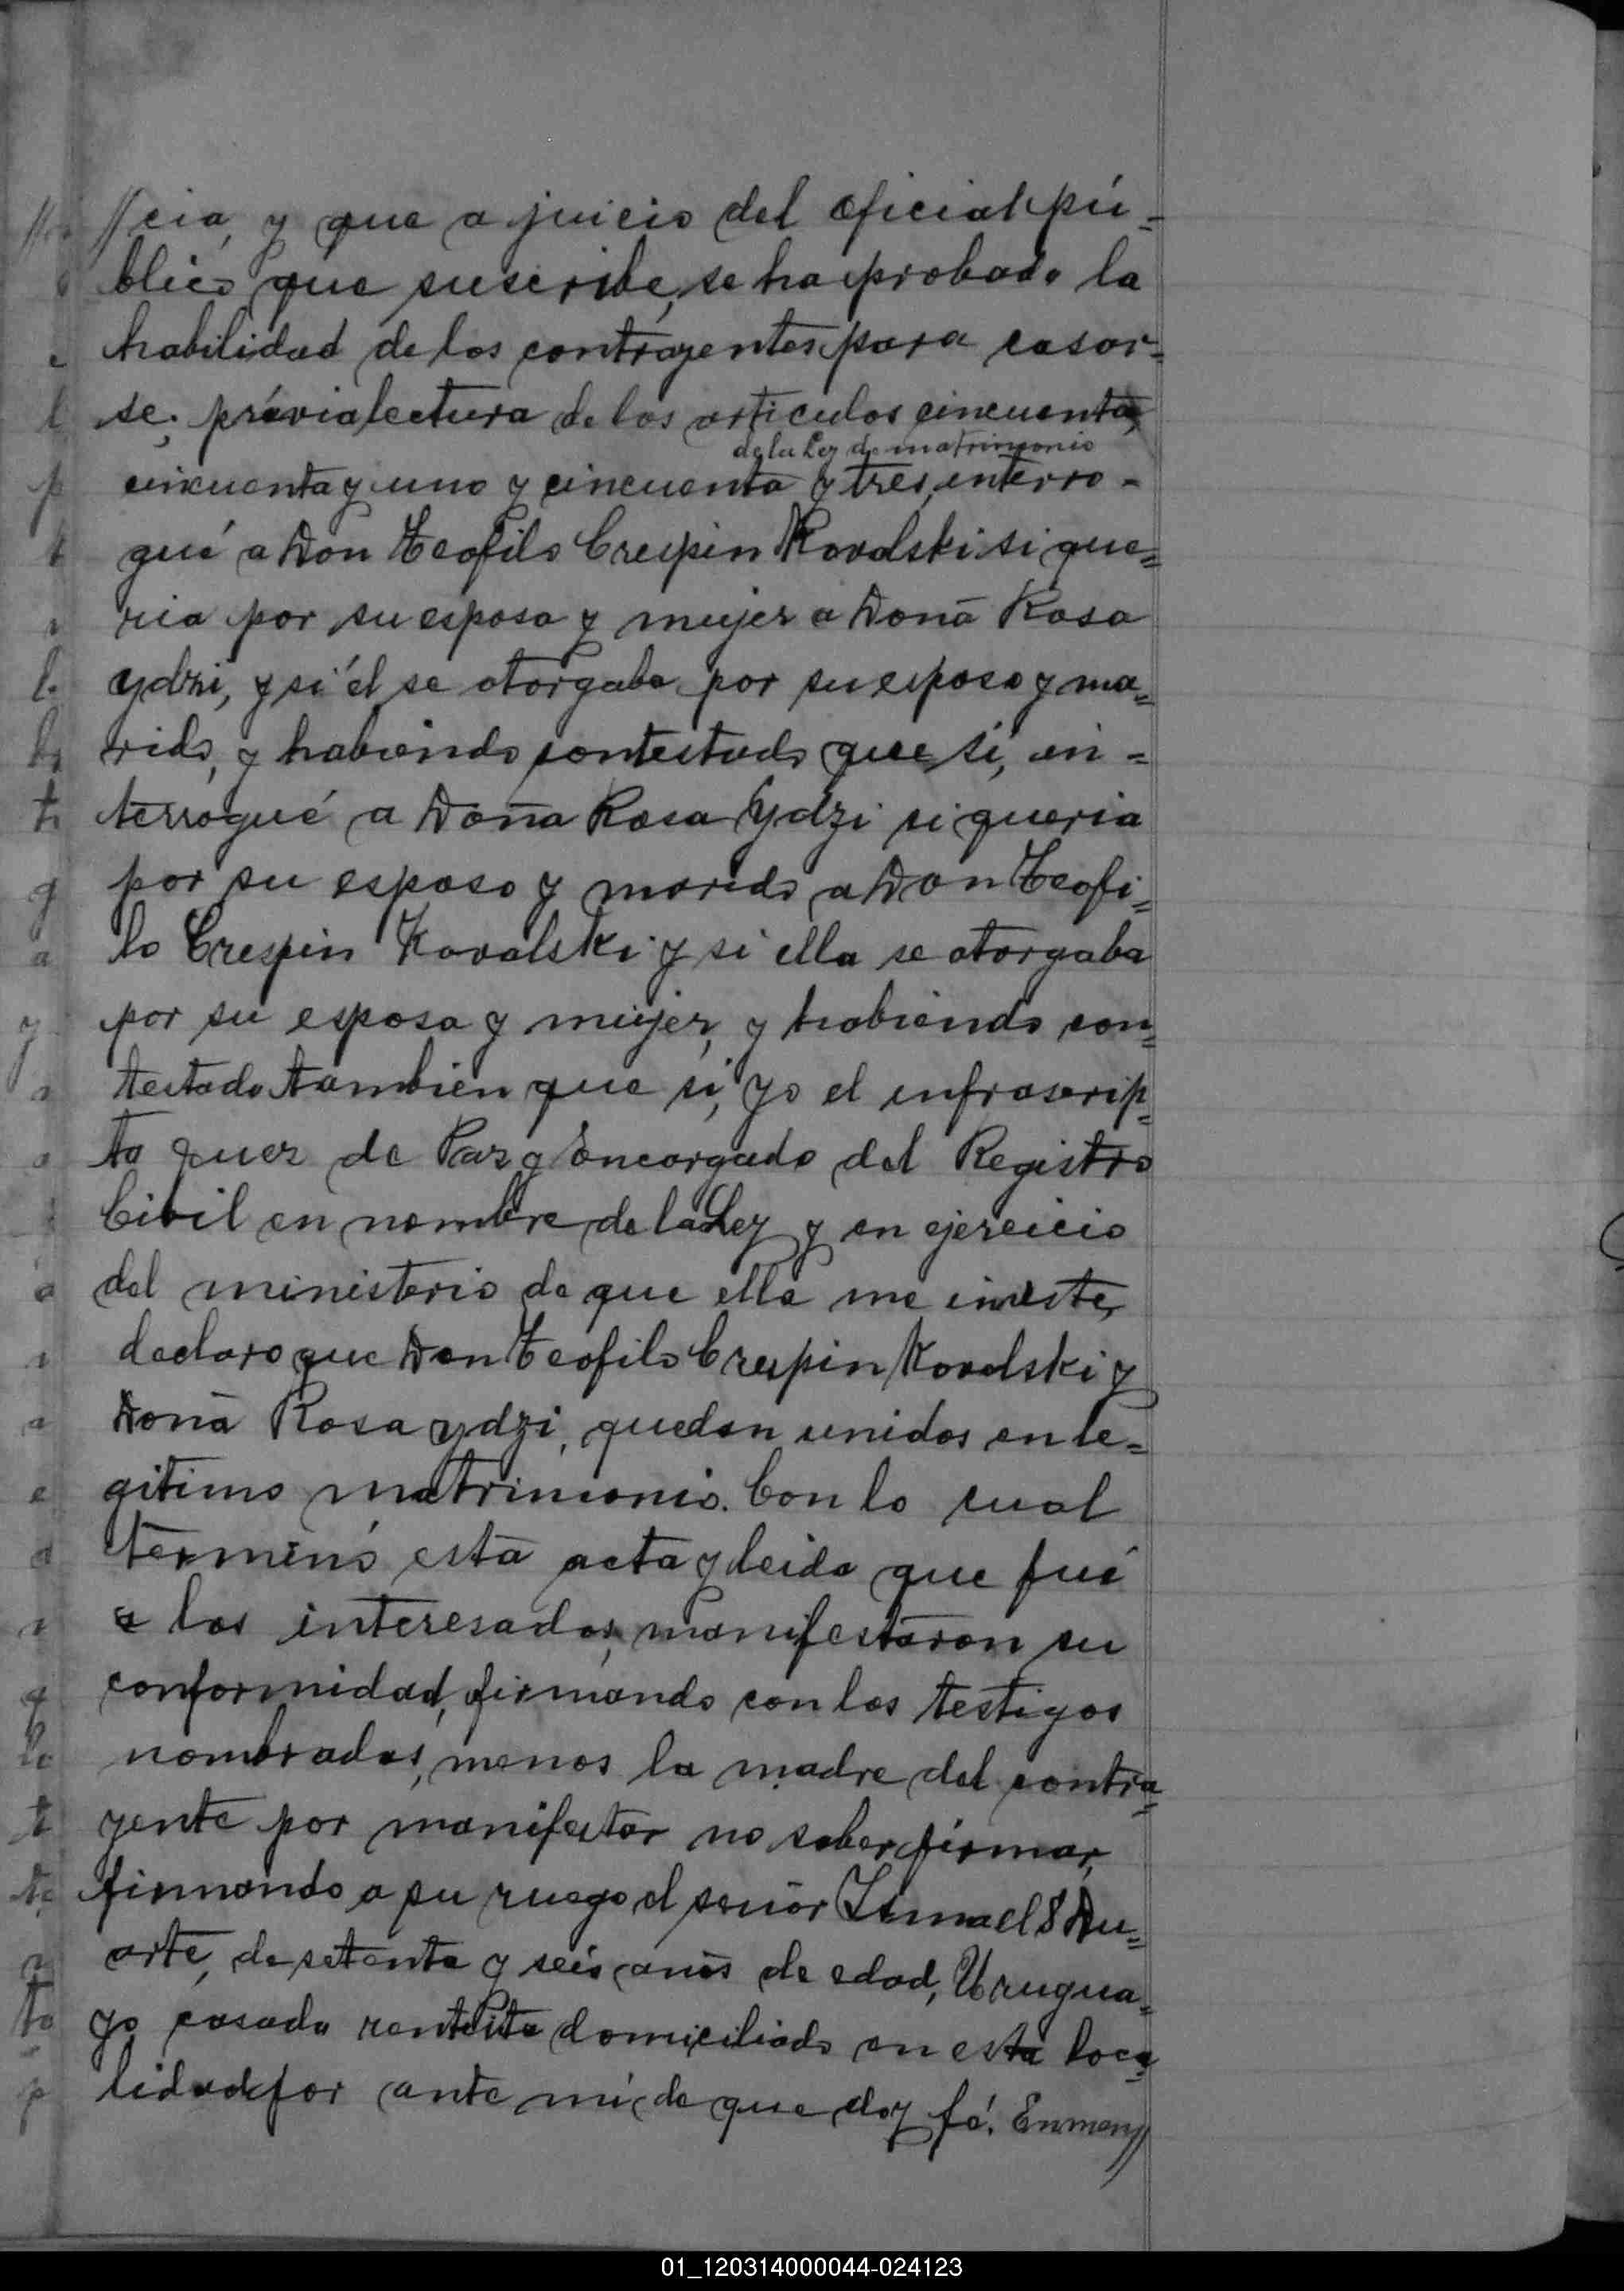 //cia, y que a juicio del oficial pú-
blico que suscribe, se ha probado la
habilidad de los contrayentes para casar-
se; prévia lectura de los articulos cincuenta,
de la Ley de matrimonio
cincuenta y uno y cincuenta y tres, interro-
gué a Don Teofilo Crespin Kovalski si que=
ria por su esposa y mujer a Doña Rosa
Ydzi, y si él se otorgaba por su esposo y ma=
rido, y habiendo contestado que si, in=
terrogué a Doña Rosa Ydzi si queria
por su esposo y marido a Don Teofi=
lo Crespin Kovalski y si ella se otorgaba
por su esposa y mujer, y habiendo con=
testado tambien que si, yo el infrascrip=
to Juez de Paz y Encargado del Registro
Civil en nombre de la Ley y en ejercicio
del ministerio de que ella me inviste,
declaro que Don Teofilo Crespin Kovalski y
Doña Rosa Ydzi, quedan unidos en le=
gitimo matrimonio. Con lo cual
terminó esta acta y leida que fué
a los interesados, manifestaron su
conformidad, firmando con los testigos
nombrados, menos la madre del contra=
yente por manifestar no saber firmar,
firmando a su ruego el señor Ismael S Du=
arte, de setenta y seis años de edad, Urugua=
yo casado rentista domiciliado en esta loca=
lidad por ante mí de que doy fé. Enmen//
01_120314000044-024123